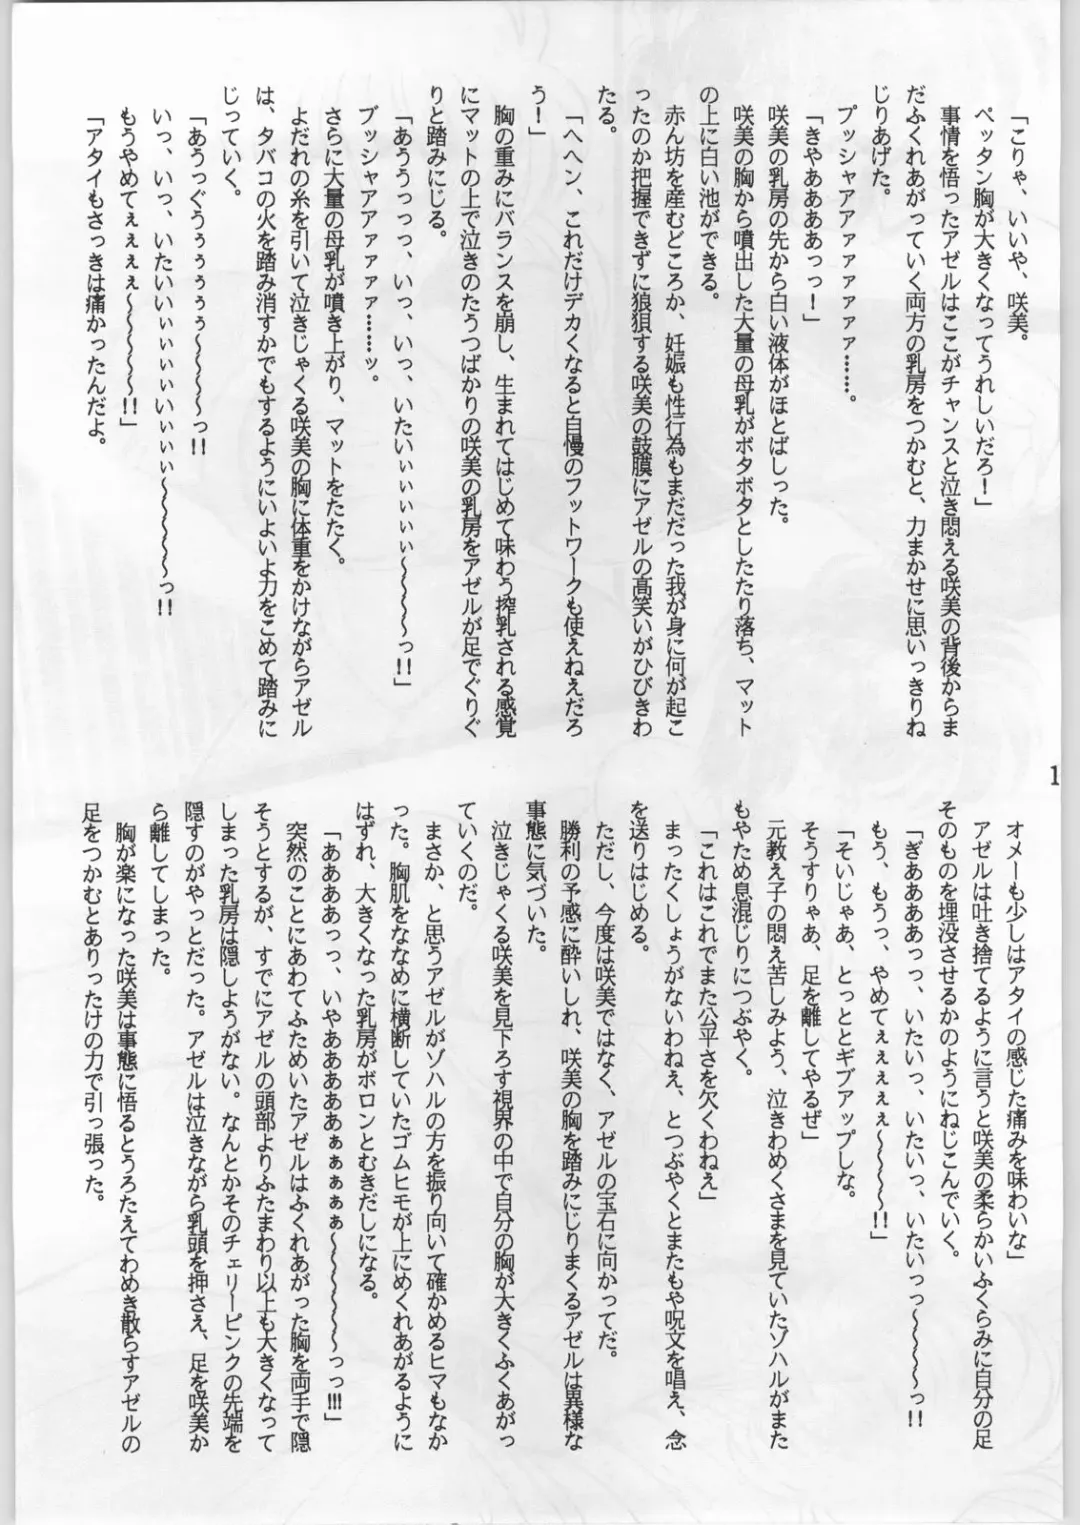 「こりゃ、いいや、咲美。
ペッタン胸が大きくなってうれしいだろ！」
事情を悟ったアゼルはここがチャンスと泣き悶える咲美の背後からま
だふくれあがっていく両方の乳房をつかむと、力まかせに思いっきりね
じりあげた。
プッシャアアァァァァァ……。
「きゃああああっっ！」
咲美の乳房の先から白い液体がほとばしった。
咲美の胸から噴出した大量の母乳がボタボタとしたたり落ち、マット
の上に白い池ができる。
赤ん坊を産むどころか、妊娠も性行為もまだだった我が身に何が起こ
ったのか把握できずに狼狽する咲美の鼓膜にアゼルの高笑いがひびきわ
たる。
「へへン、これだけデカくなると自慢のフットワークも使えねえだろ
う！」
胸の重みにバランスを崩し、生まれてはじめて味わう搾乳される感覚
にマットの上で泣きのたうつばかりの咲美の乳房をアゼルが足でぐりぐ
りと踏みにじる。
「あううっっっ、いっ、いっ、いたいぃぃぃぃぃ～～～～～っ!!」
ブッシャアアアァァァァ……ッ。
さらに大量の母乳が噴き上がり、マットをたたく。
よだれの糸を引いて泣きじゃくる咲美の胸に体重をかけながらアゼル
は、タバコの火を踏み消すかでもするようにいよいよ力をこめて踏みに
じっていく。
「あうっぐうぅぅぅぅぅぅ～～～～～っ!!
いっ、いっ、いたいいぃぃぃぃぃいぃぃぃ～～～～～っ!!
もうやめてぇぇぇぇ～～～～～!!」
「アタイもさっきは痛かったんだよ。
オメーも少しはアタイの感じた痛みを味わいな」
アゼルは吐き捨てるように言うと咲美の柔らかいふくらみに自分の足
そのものを埋没させるかのようにねじこんでいく。
「ぎああああっっ、いたいっ、いたいっ、いたいっっ～～～～～っ!!
もう、もうっ、やめてぇぇぇぇぇ～～～～!!」
「そいじゃあ、とっととギブアップしな。
そうすりゃあ、足を離してやるぜ」
元教え子の悶え苦しみよう、泣きわめくさまを見ていたゾハルがまた
もやため息混じりにつぶやく。
「これはこれでまた公平さを欠くわねえ」
まったくしょうがないわねえ、とつぶやくとまたもや呪文を唱え、念
を送りはじめる。
ただし、今度は咲美ではなく、アゼルの宝石に向かってだ。
勝利の予感に酔いしれ、咲美の胸を踏みにじりまくるアゼルは異様な
事態に気づいた。
泣きじゃくる咲美を見下ろす視界の中で自分の胸が大きくふくあがっ
ていくのだ。
まさか、と思うアゼルがゾハルの方を振り向いて確かめるヒマもなか
った。胸肌をななめに横断していたゴムヒモが上にめくれあがるように
はずれ、大きくなった乳房がボロンとむきだしになる。
「ああああっっ、いやあああああぁぁぁぁぁ～～～～～～っっ!!!」
突然のことにあわてふためいたアゼルはふくれあがった胸を両手で隠
そうとするが、すでにアゼルの頭部よりふたまわり以上も大きくなって
しまった乳房は隠しようがない。なんとかそのチェリーピンクの先端を
隠すのがやっとだった。アゼルは泣きながら乳頭を押さえ、足を咲美か
ら離してしまった。
胸が楽になった咲美は事態に悟るとうろたえてわめき散らすアゼルの
足をつかむとありったけの力で引っ張った。
1